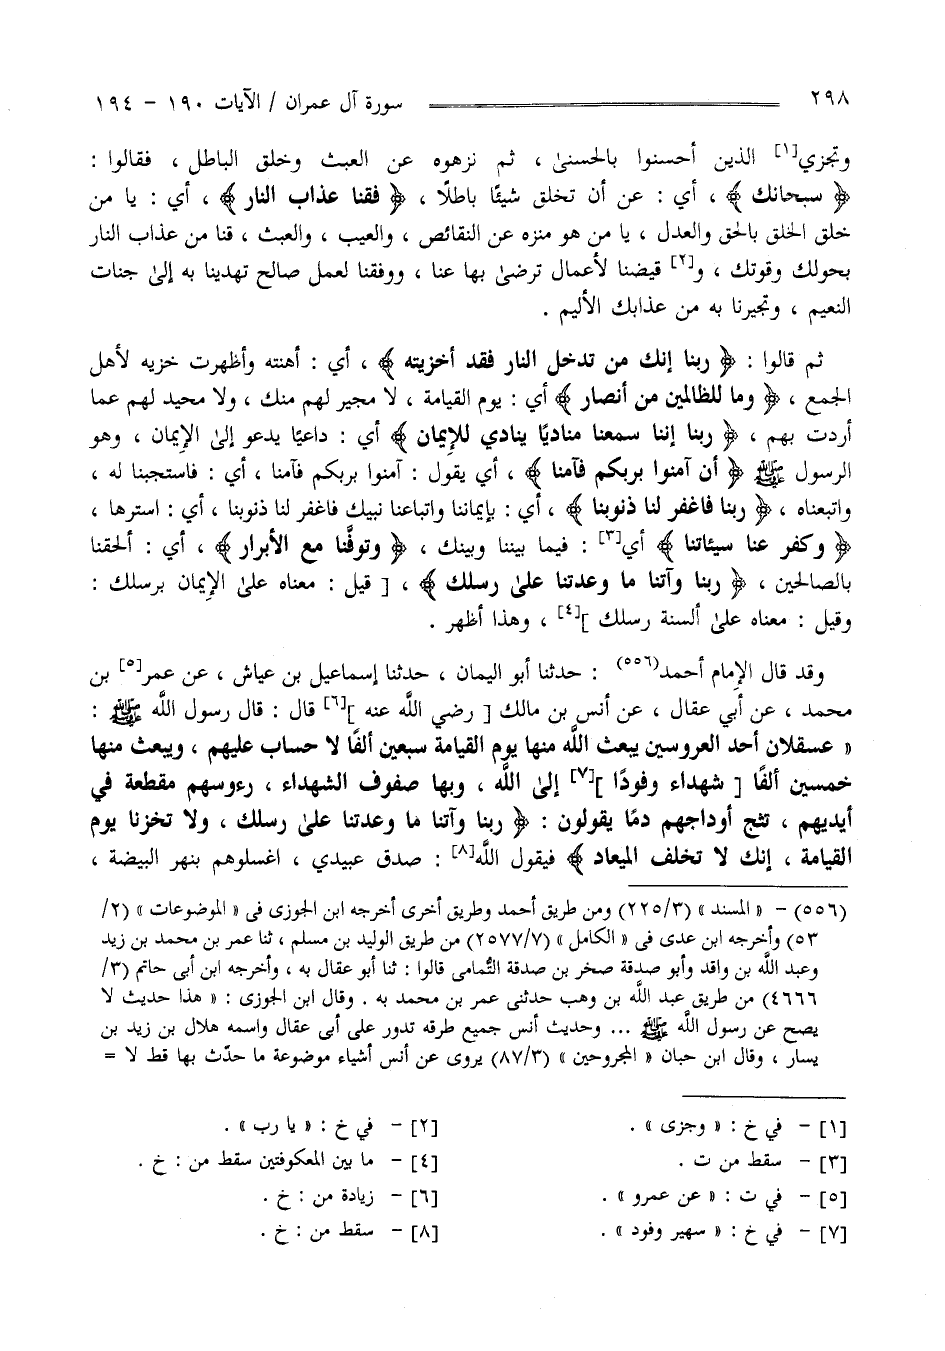 ٢٩٨ سورة آل عمران / الآيات ١٩٠ - ١٩٤
وتجزي[١] الذين أحسنوا بالحسنىٰ ، ثم نزهوه عن العبث وخلق الباطل ، فقالوا :
﴿ سبحانك ﴾ ، أي : عن أن تخلق شيئًا باطلًا ، ﴿ فقنا عذاب النار ﴾ ، أي : يا من
خلق الخلق بالحق والعدل ، يا من هو منزه عن النقائص ، والعيب ، والعبث ، قنا من عذاب النار
بحولك وقوتك ، و[٢] قيضنا لأعمال ترضىٰ بها عنا ، ووفقنا لعمل صالح تهدينا به إلىٰ جنات
النعيم ، وتجيرنا به من عذابك الأليم .
ثم قالوا : ﴿ ربنا إنك من تدخل النار فقد أخزيته ﴾ ، أي : أهنته وأظهرت خزيه لأهل
الجمع ، ﴿ وما للظالمين من أنصار ﴾ أي : يوم القيامة ، لا مجير لهم منك ، ولا محيد لهم عما
أردت بهم ، ﴿ ربنا إننا سمعنا مناديًا ينادي للإيمان ﴾ أي : داعيًا يدعو إلىٰ الإيمان ، وهو
الرسول ﷺ ﴿ أن آمنوا بربكم فآمنا ﴾ ، أي يقول : آمنوا بربكم فآمنا ، أي : فاستجبنا له ،
واتبعناه ، ﴿ ربنا فاغفر لنا ذنوبنا ﴾ ، أي : بإيماننا واتباعنا نبيك فاغفر لنا ذنوبنا ، أي : استرها ،
﴿ وكفر عنا سيئاتنا ﴾ أي[٣] : فيما بيننا وبينك ، ﴿ وتوفَّنا مع الأبرار ﴾ ، أي : ألحقنا
بالصالحين ، ﴿ ربنا وآتنا ما وعدتنا علىٰ رسلك ﴾ ، [ قيل : معناه علىٰ الإيمان برسلك :
وقيل : معناه علىٰ ألسنة رسلك ][٤] ، وهذا أظهر .
وقد قال الإمام أحمد(٥٥٦) : حدثنا أبو اليمان ، حدثنا إسماعيل بن عياش ، عن عمر[٥] بن
محمد ، عن أبي عقال ، عن أنس بن مالك [ رضي اللَّه عنه ][٦] قال : قال رسول اللَّه ﷺ :
« عسقلان أحد العروسين يبعث اللَّه منها يوم القيامة سبعين ألفًا لا حساب عليهم ، ويبعث منها
خمسين ألفًا [ شهداء وفودًا ][٧] إلىٰ اللَّه ، وبها صفوف الشهداء ، رءوسهم مقطعة في
أيديهم ، تثج أوداجهم دمًا يقولون : ﴿ ربنا وآتنا ما وعدتنا علىٰ رسلك ، ولا تخزنا يوم
القيامة ، إنك لا تخلف الميعاد ﴾ فيقول اللَّه[٨] : صدق عبيدي ، اغسلوهم بنهر البيضة ،
(٥٥٦) - « المسند » (٢٢٥/٣) ومن طريق أحمد وطريق أخرى أخرجه ابن الجوزى فى « الموضوعات » (٢/
٥٣) وأخرجه ابن عدى فى « الكامل » (٢٥٧٧/٧) من طريق الوليد بن مسلم ، ثنا عمر بن محمد بن زيد
وعبد اللَّه بن واقد وأبو صدقة صخر بن صدقة الثُّمامى قالوا : ثنا أبو عقال به ، وأخرجه ابن أبى حاتم (٣/
٤٦٦٦) من طريق عبد اللَّه بن وهب حدثنى عمر بن محمد به . وقال ابن الجوزى : « هذا حديث لا
يصح عن رسول اللَّه ﷺ ... وحديث أنس جميع طرقه تدور على أبى عقال واسمه هلال بن زيد بن
يسار ، وقال ابن حبان « المجروحين » (٨٧/٣) يروى عن أنس أشياء موضوعة ما حدّث بها قط لا =
[١] - في خ : « وجزى » . [٢] - في خ : « يا رب » .
[٣] - سقط من ت . [٤] - ما بين المعكوفتين سقط من : خ .
[٥] - في ت : « عن عمرو » . [٦] - زيادة من : خ .
[٧] - في خ : « سهير وفود » . [٨] - سقط من : خ .